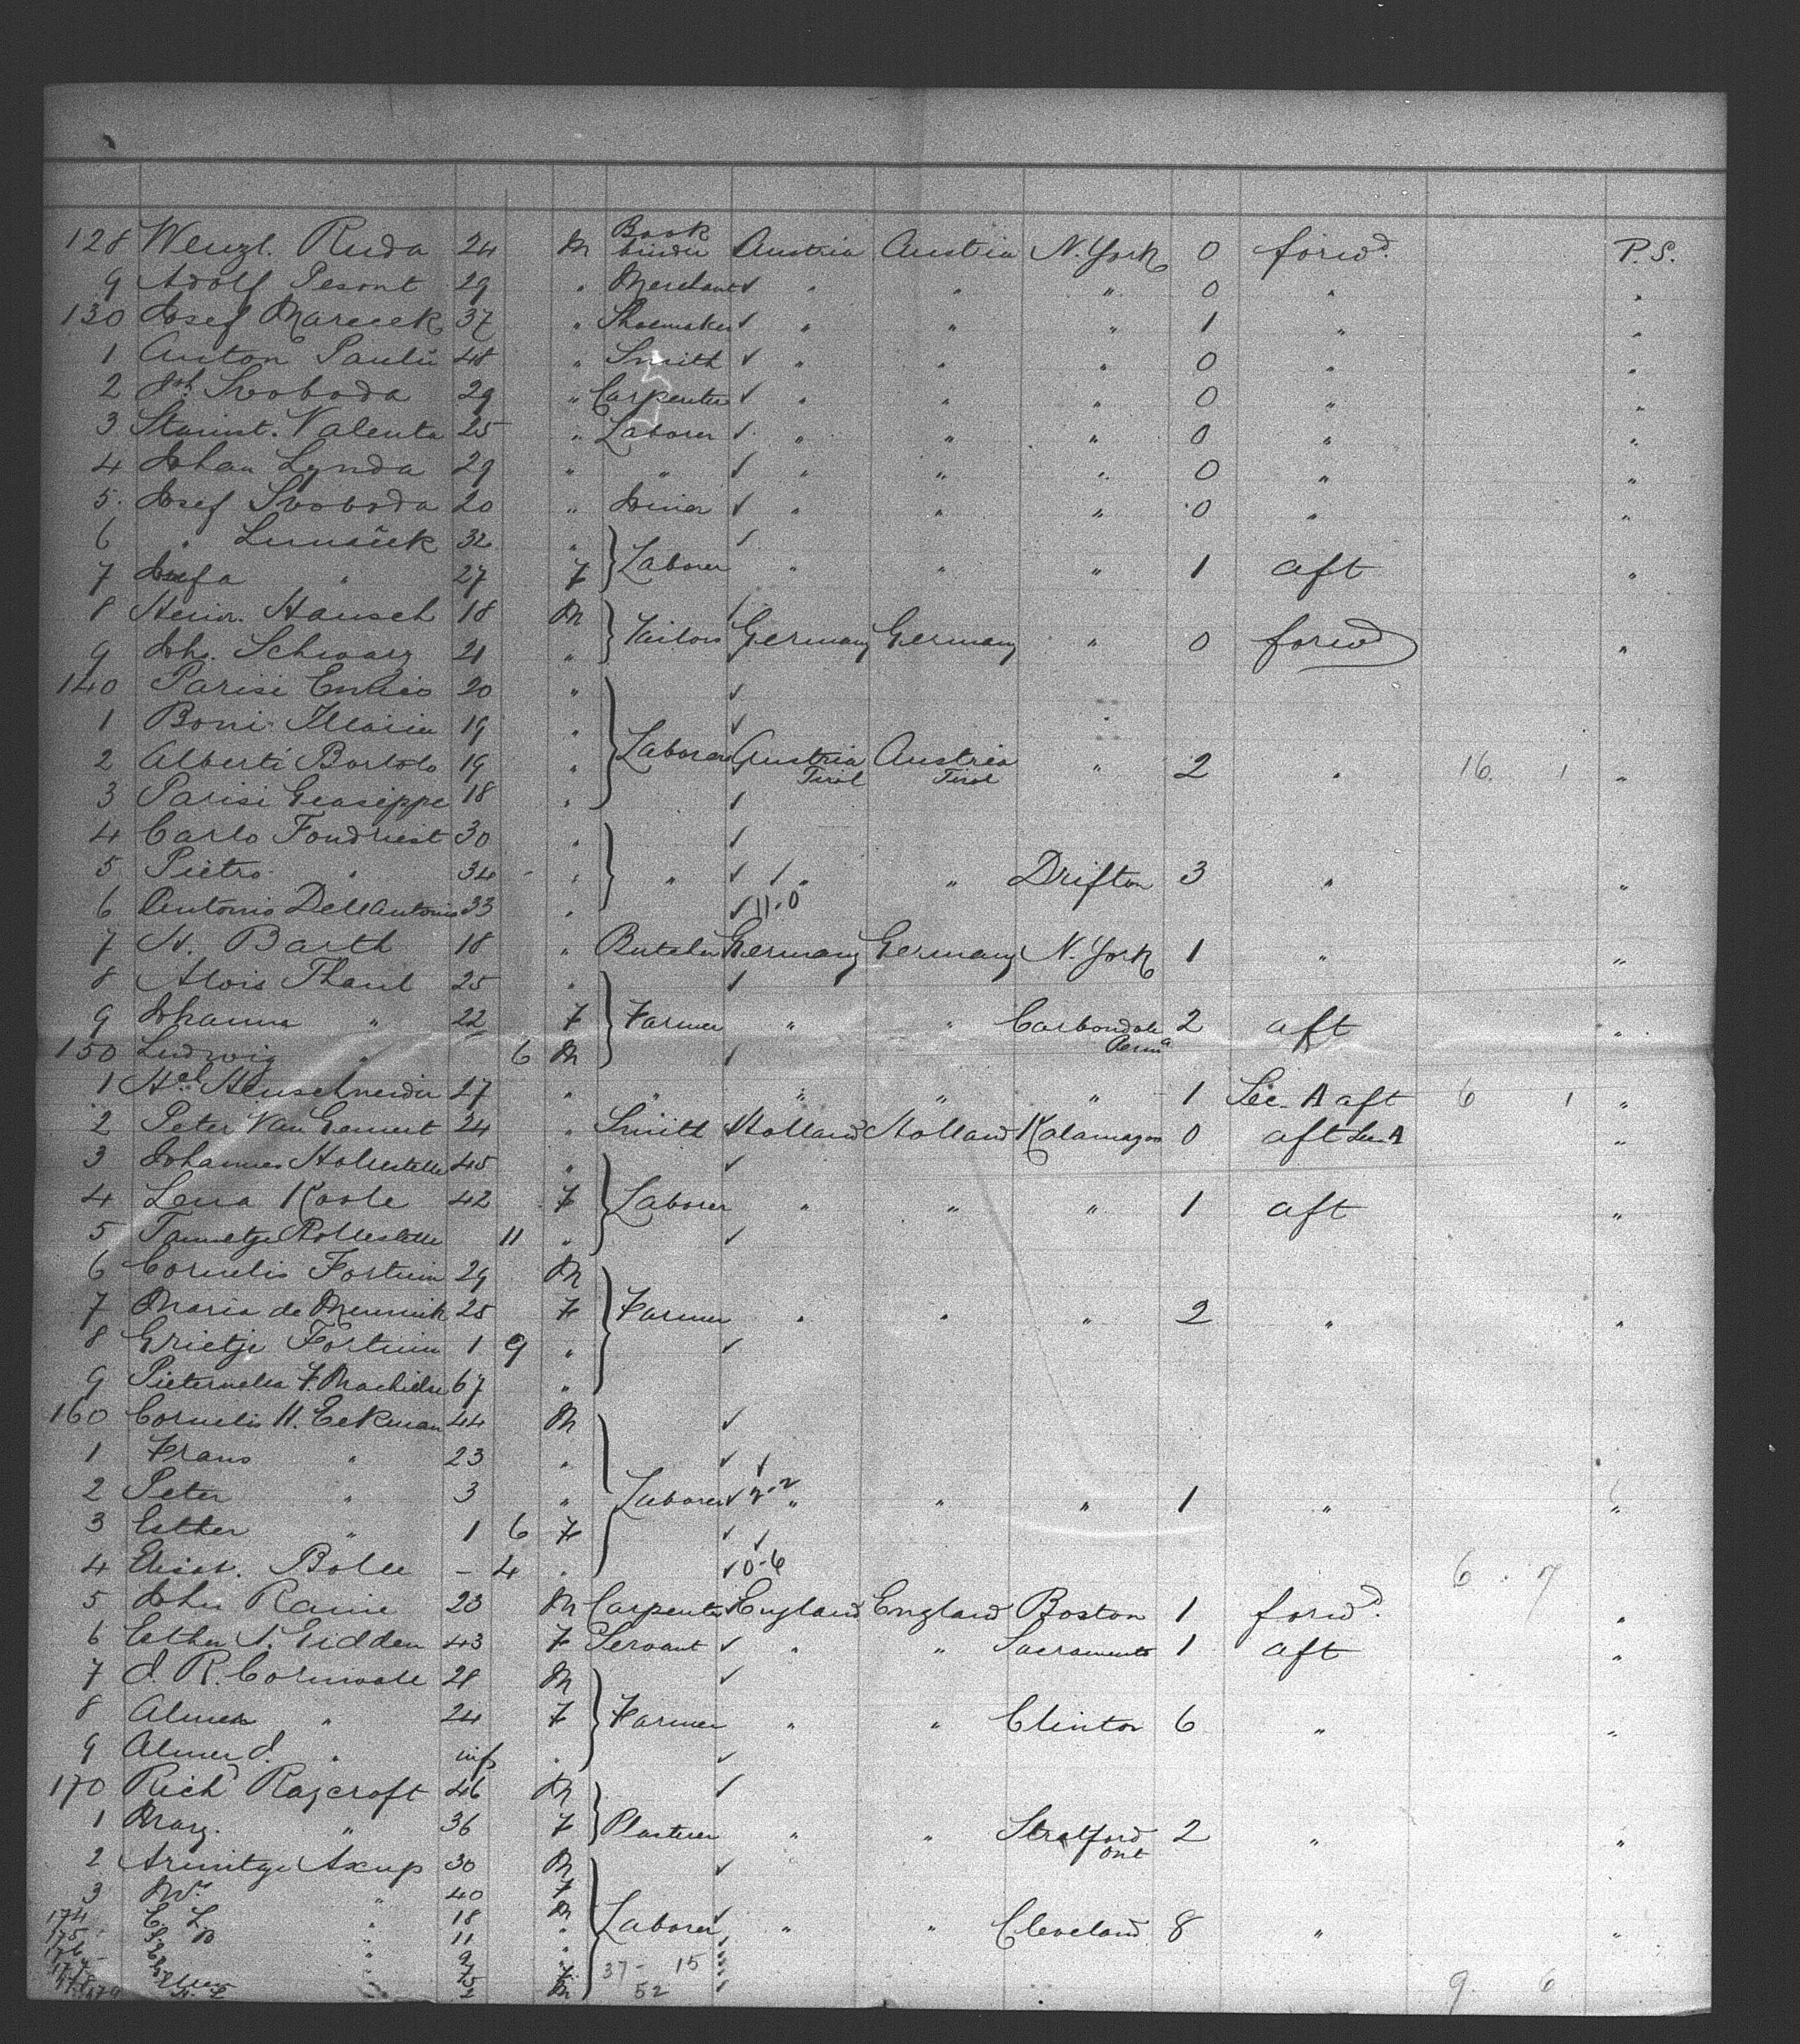 128 Wenzl. Ruda 24 M Book binder Austria Austria N. York 0 forwd. P.S.
9 Adolf Pesont 29 " Merchant ✓ " " " 0 " "
130 Josef Marecek 37 " Shoemaker ✓ " " " 1 " "
1 Anton Paulu 48 " Smith ✓ " " " 0 " "
2 Joh Svoboda 29 " Carpenter ✓ " " " 0 " "
3 Stanist. Valenta 25 " Laborer ✓ " " " 0 " "
4 Johan Lynda 29 " " ✓ " " " 0 " "
5 Josef Svoboda 20 " Joiner ✓ " " " 0 " "
6 " 32 " ✓
7 Josefa " 27 F Laborer " " " 1 aft "
8 Heinr. Hansch 18 M
9 Joh. Schwarz 21 " Tailors Germany Germany " 0 forwd "
140 Parisi Enrico 20 " ✓
1 Boni Illario 19 " ✓ "
2 Alberti Bortolo 19 " Laborers Austria Tirol Austria Tirol " 2 " 16. 1 "
3 Parisi Giuseppe 18 " ✓
4 Carlo Fondriest 30 " ✓
5 Pietro " 34 - " " ✓ " " Drifton 3 " "
6 Antonio Dellantonio 33 " ✓ 11-0
7 H. Barth 18 " Butcher Germany Germany N. York 1 " "
8 Alois Thanl 25 " ✓
9 Johanna " 22 F Farmer " " Carbondale Penna 2 aft "
150 Ludwig " 6 M ✓
1 Hel Heuschneider 27 " " " " " 1 Sec. A aft 6 1 "
2 Peter Van Gemert 24 " Smith Holland Holland Kalamazoo 0 aft Sec A "
3 Johannes 45 " ✓
4 Lena Koole 42 F Laborer " " " 1 aft "
5 Tannetje 11 " ✓
6 Cornelis Fortuin 29 M
7 Maria de 25 F Farmer " " " 2 " "
8 Grietje Fortuin 1 9 " ✓
9 Pieternella F. 67 "
160 Cornelis H. Eekman 44 M ✓
1 Frans " 23 " ✓ ✓
2 Peter " 3 " Laborer ✓ 2-2 " " " 1 " "
3 Esther " 1 6 F ✓ ✓
4 Elisab. Bolle - 4 " ✓ 0-6 6 . 7
5 John Raine 23 M Carpenter England England Boston 1 forwd. "
6 Esther S. Gidden 43 F Servant ✓ " " Sacramento 1 aft "
7 J. R. Cornwall 28 M ✓
8 Almea " 24 F Farmer " " Clinton 6 " "
9 Almer J. " inf " ✓
170 Richd Raycroft 46 M ✓
1 Marg. " 36 F Plasterer " " Stratford Ont 2 " "
2 Armitge Axup 30 M ✓
3 Mrs " 40 F
174 C. L. " 18 M Laborer ✓ " " Cleveland 8 " "
175 11 "
176 9 "
37 - 15
52 9 6